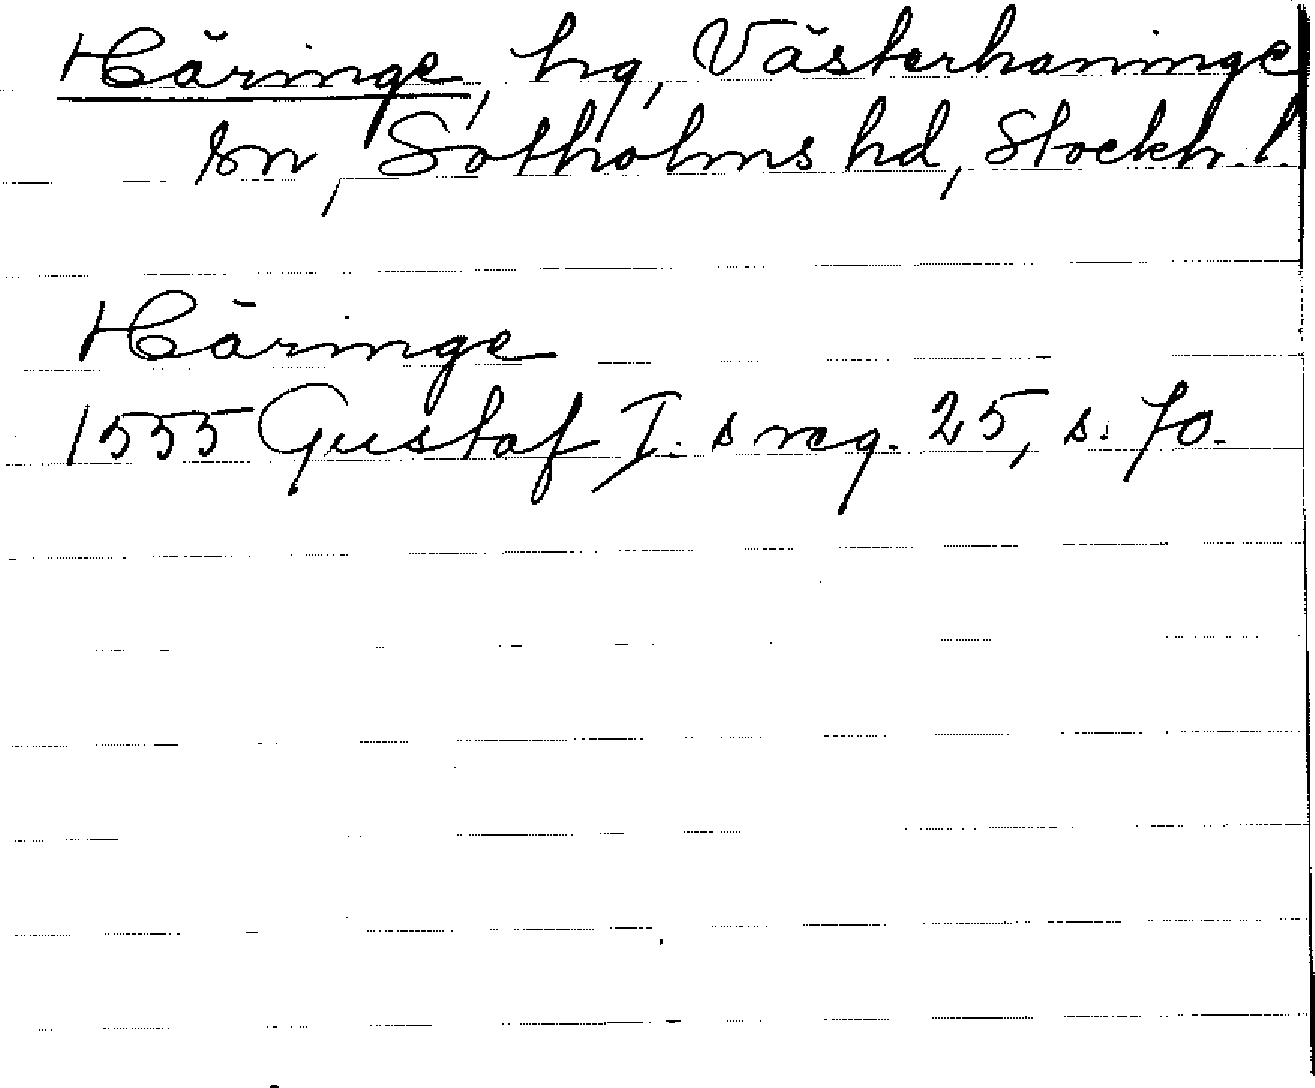 Häringe, hg, Västerhaninge
sn, Sotholms hd, Stockh. l.
Häringe
1555 Gustaf I:s reg. 25, s. 70.